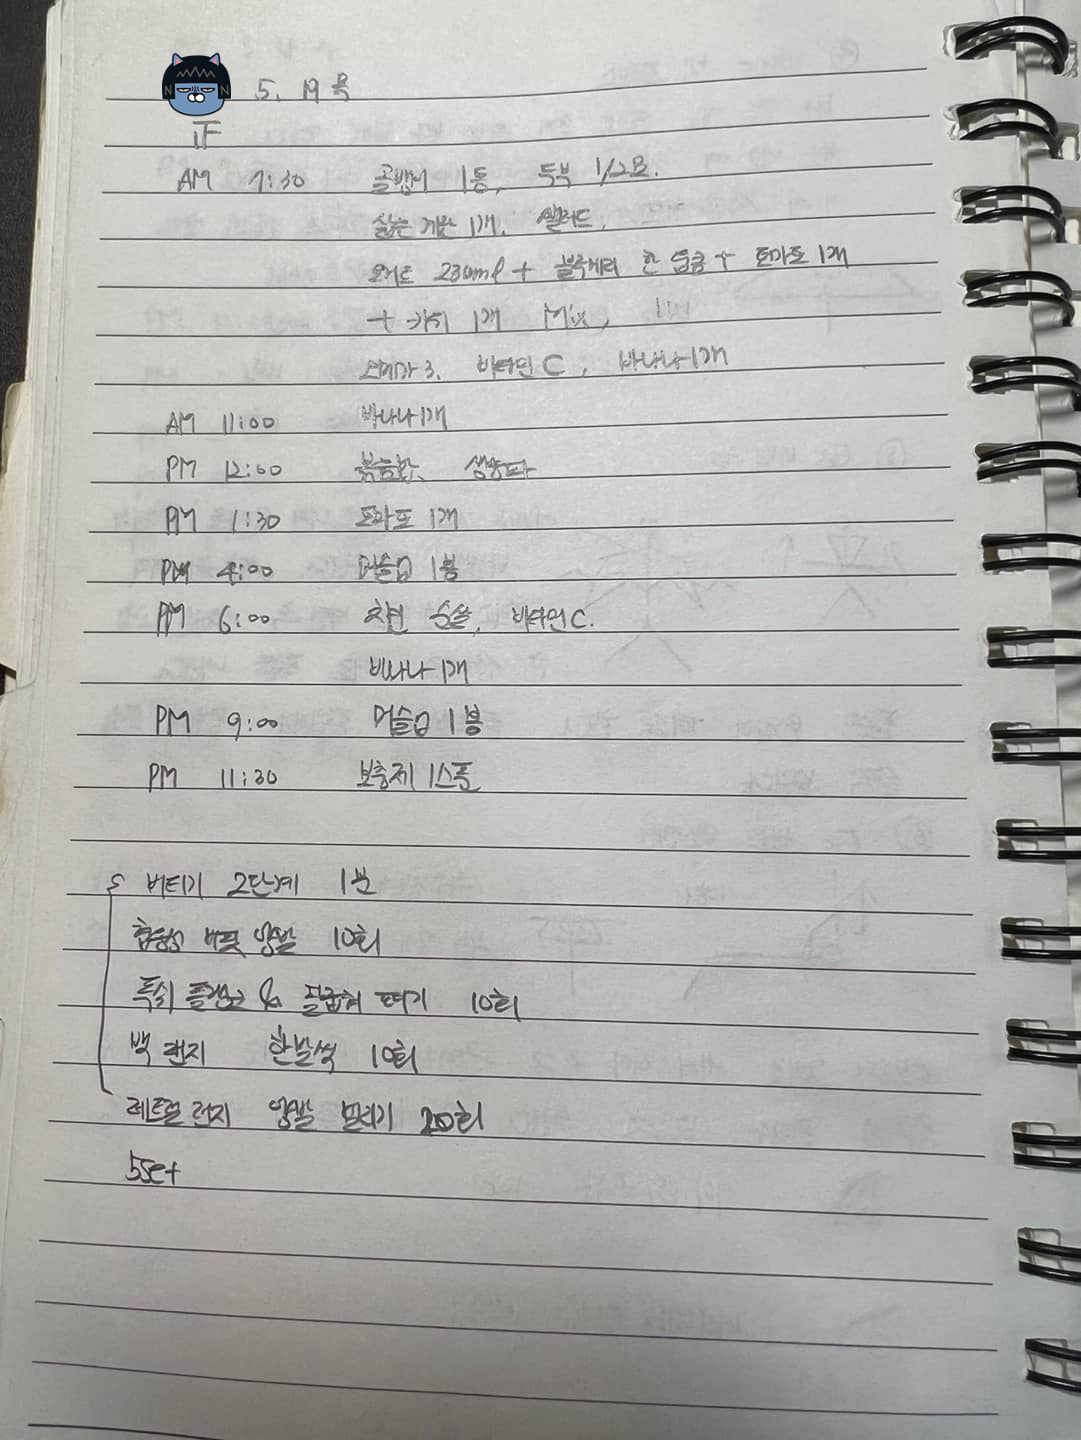 5. 19 목
正
AM 7:30 골뱅이 1통, 두부 1/2모.
삶은 계란 1개, 샐러드,
오트 230ml + 블루베리 한 움큼 + 토마토 1개
+ 키위 1개 Mix,
오메가 3, 비타민 C, 바나나 1개
AM 11:00 바나나 1개
PM 12:00 볶음밥, 생양파
PM 1:30 토마토 1개
PM 4:00 머슬밀 1봉
PM 6:00 치킨 순살, 비타민 C.
바나나 1개
PM 9:00 머슬밀 1봉
PM 11:30 보충제 1스푼
버티기 2단계 1분
양발 10회
플랭크 & 뛰기 10회
백 런지 한발씩 10회
레트럴 런지 양발 20회
5set